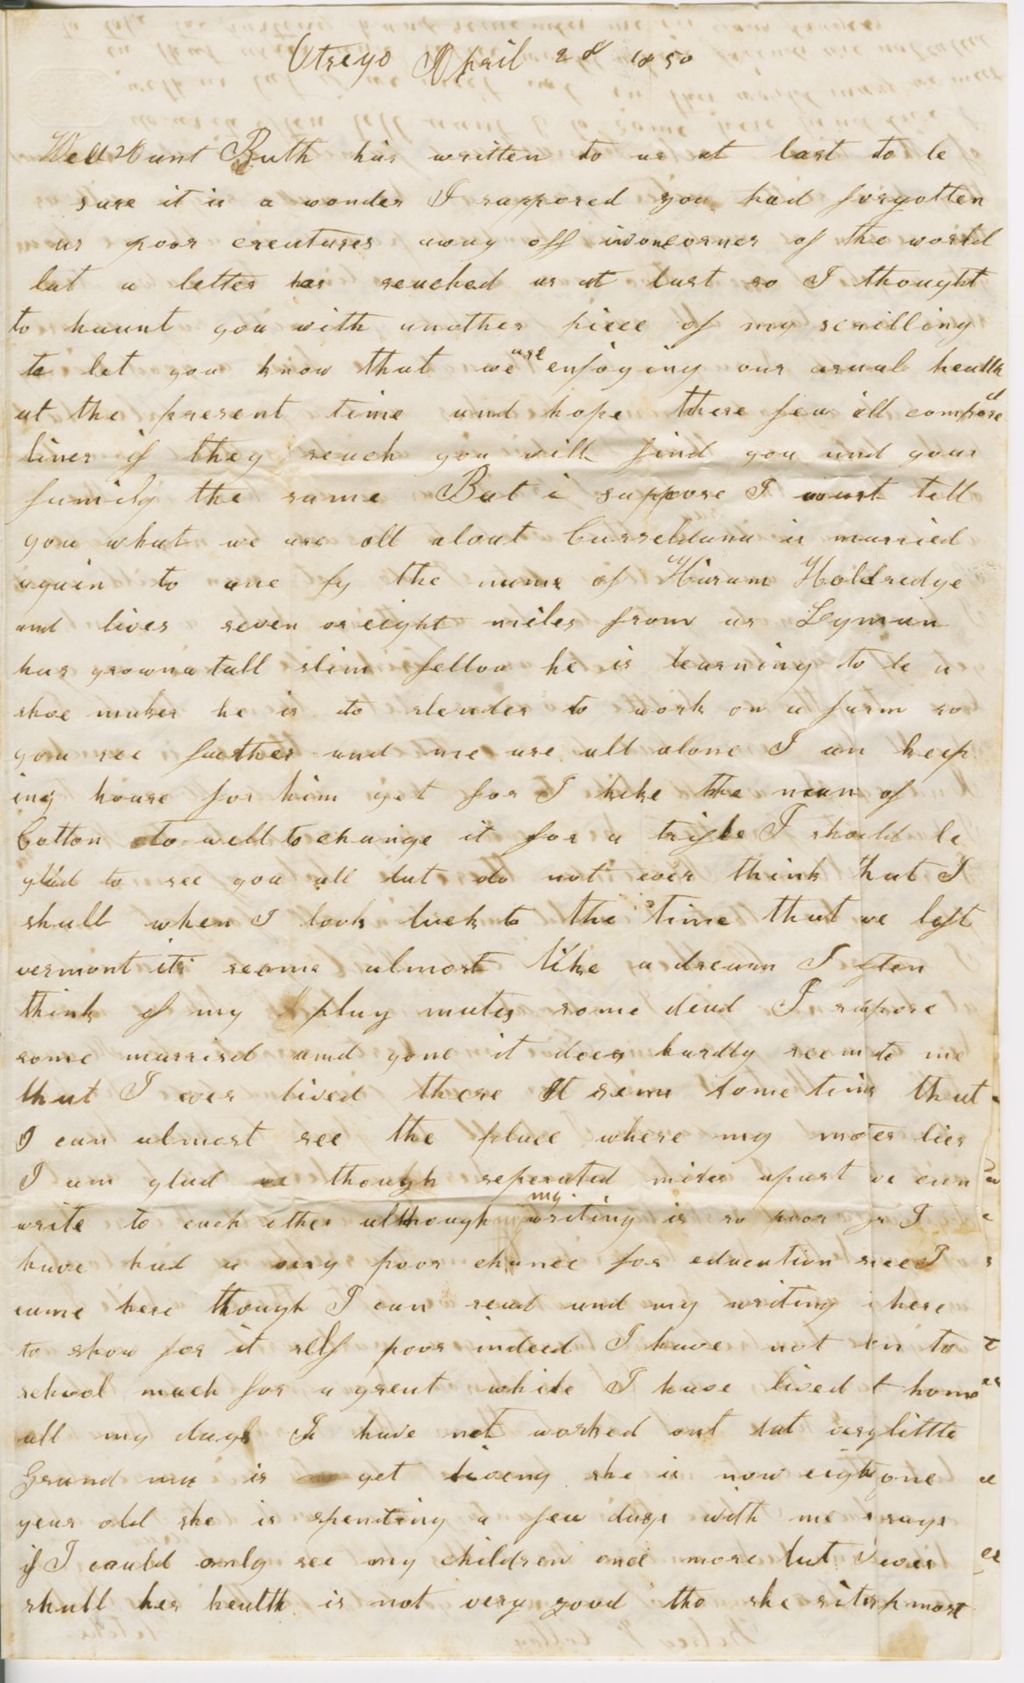 Otsego April 28 1850
Well Aunt Ruth has written to us at last to be
sure it is a wonder I sapposed you had forgotten
us poor creatures away off in one corner of the world
but a letter has reached us at last so I thought
to haunt you with another piece of my scrilling
to let you know that we are enjoying our usual health
at the present time and hope these few ill composed
lines if they reach you will find you and your
family the same But i suppose I must tell
you what we are all about Casseldana is married
again to one by the name of Hiram Holdredge
and lives seven or eight miles from us Lyman
has grown a tall slim fellow he is learning to be a
shoe maker he is to slender to work on a farm so
you see farther and me are all alone I am keep
ing house for him yet for I like the name of
Cotton to well to change it for a trifle I should be
glad to see you all but do not ever think that I
shall when I look back to the time that we left
vermont its seems almost like a dream I often
think of my play mates some dead I supose
some married and gone it does hardly seem to me
that I ever lived there It sems some tims that
I can almost see the place where my moter lies
I am glad though seperated miles apart we can
write to each other although my writing is so poor I
have had a very poor chance for education sice I
came here though I can read and my writing is here
to show for it self poor indeed I have not ben to
school much for a great while I have lived t home
all my days I have not worked out but very little
Grand ma is yet liveng she is now eighty one
year old she is spending a few days with me s says
if I could only see my children once more but never
shall her health is not very good tho she sits up most